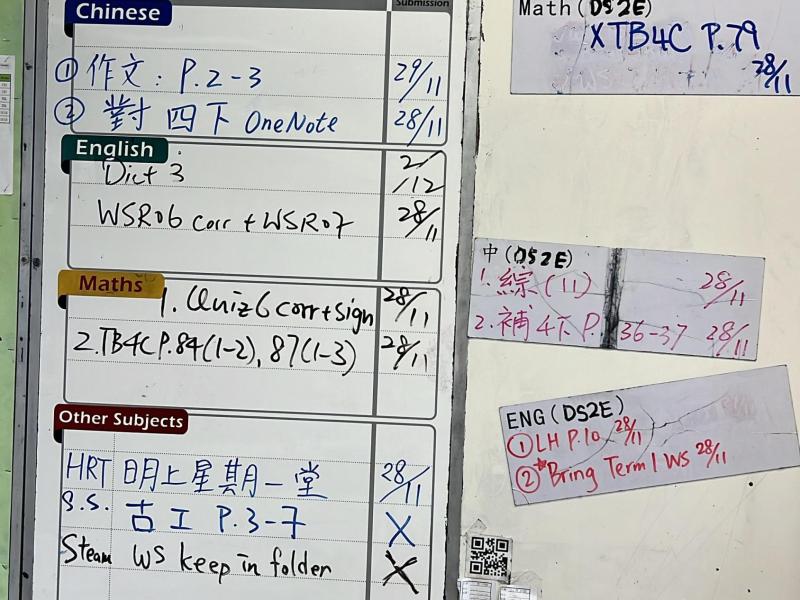 Submission
Chinese
① 作文：P.2-3 29/11
② 對 四下 OneNote 28/11
English
Dict 3 2/12
WSR06 corr + WSR07 28/11
Maths
1. Quiz 6 corr + sign 28/11
2. TB4C P.84(1-2), 87(1-3) 28/11
Other Subjects
HRT 明上星期一堂 28/11
S.S. 古工 P.3-7 X
Steam WS keep in folder X
Math (DS2E)
XTB4C P.79
28/11
中 (DS2E)
1. 綜 (11) 28/11
2. 補 4下 P. 36-37 28/11
ENG (DS2E)
① LH P.10 28/11
② *Bring Term 1 WS 28/11